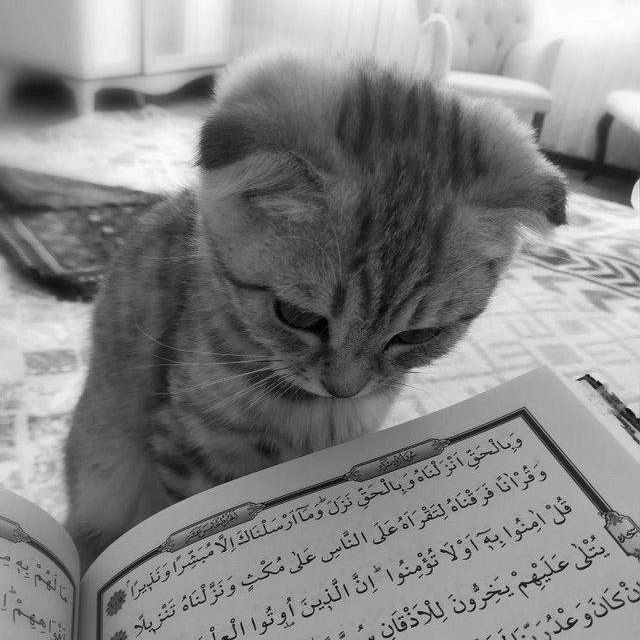 وَبِالْحَقِّ اَنْزَلْنَاهُ وَبِالْحَقِّ نَزَلَ وَمَٓا اَرْسَلْنَاكَ اِلَّا مُبَشِّرًا وَنَذِيرًا
وَقُرْاٰنًا فَرَقْنَاهُ لِتَقْرَاَهُ عَلَى النَّاسِ عَلٰى مُكْثٍ وَنَزَّلْنَاهُ تَنْزِيلًا
قُلْ اٰمِنُوا بِهِٓ اَوْ لَا تُؤْمِنُوا اِنَّ الَّذِينَ اُوتُوا الْعِلْمَ
يُتْلٰى عَلَيْهِمْ يَخِرُّونَ لِلْاَذْقَانِ
كَانَ وَعْدُ
مَا لَهُمْ بِهِ